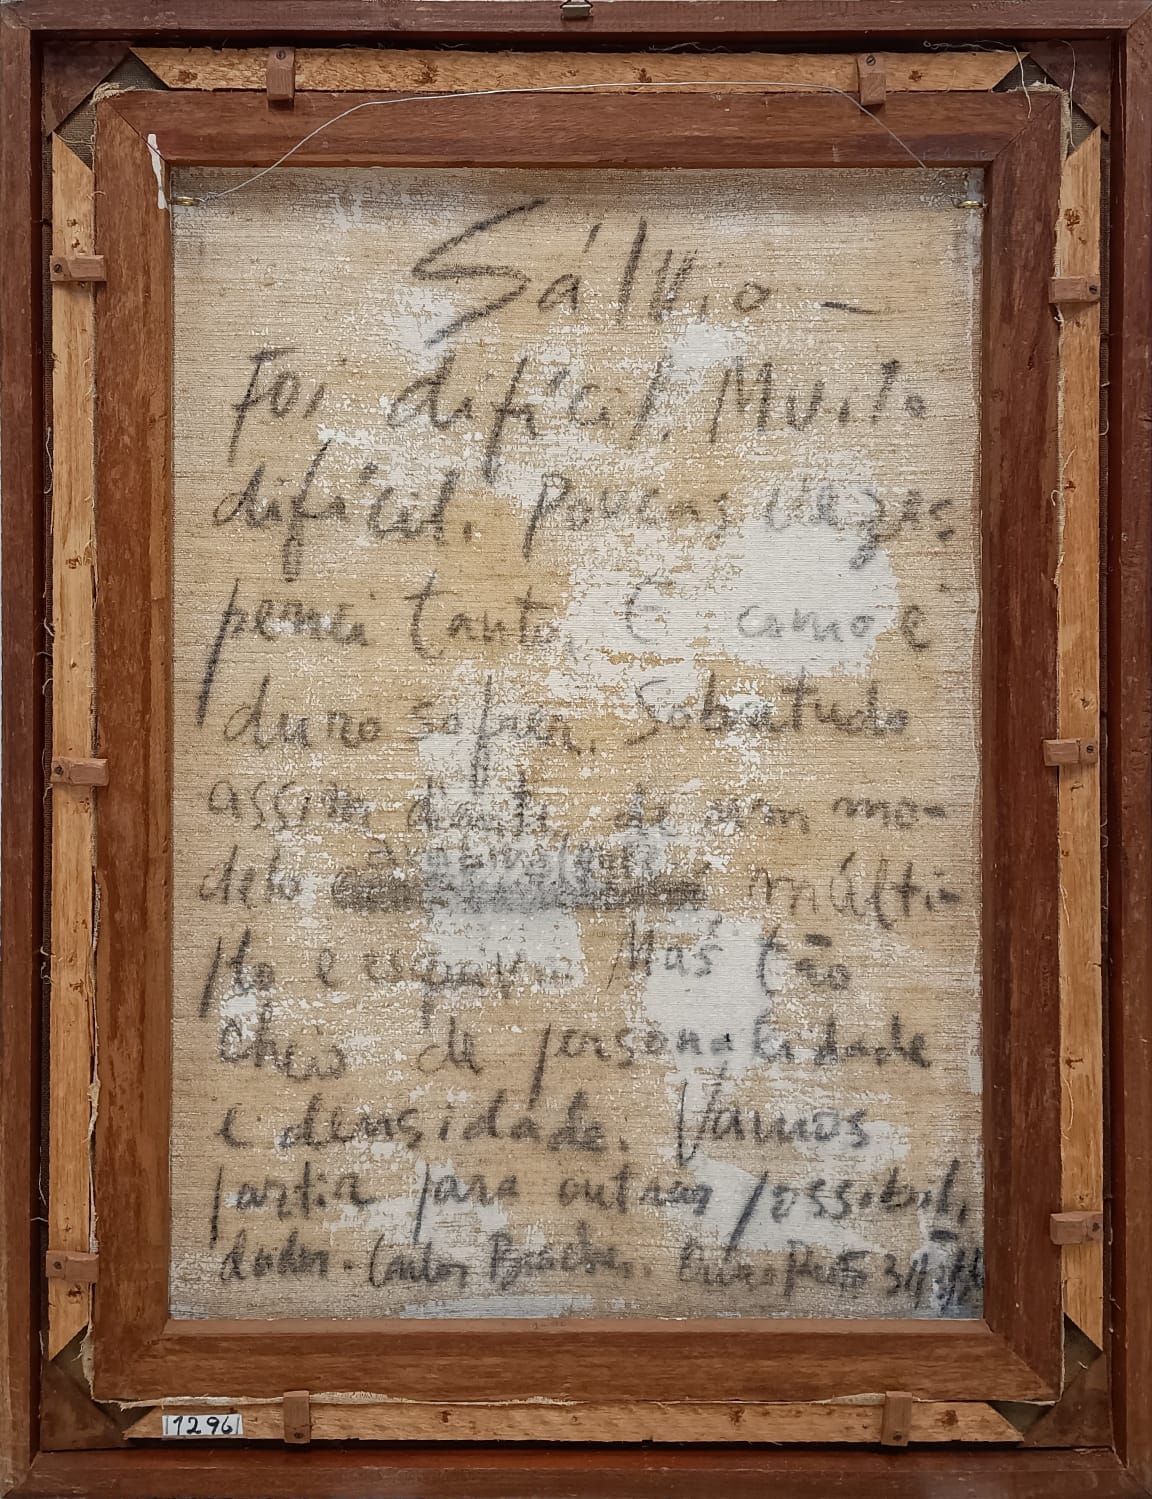 Sálvio —
Foi difícil. Muito
difícil. Poucas vezes
pensei tanto. E como é
duro sofrer. Sobretudo
assim diante de um mo-
delo múlti-
plo e Mas tão
cheio de personalidade
e densidade. Vamos
partir para outras possibili-
dades. Carlos Bracher. Ouro Preto
12 96